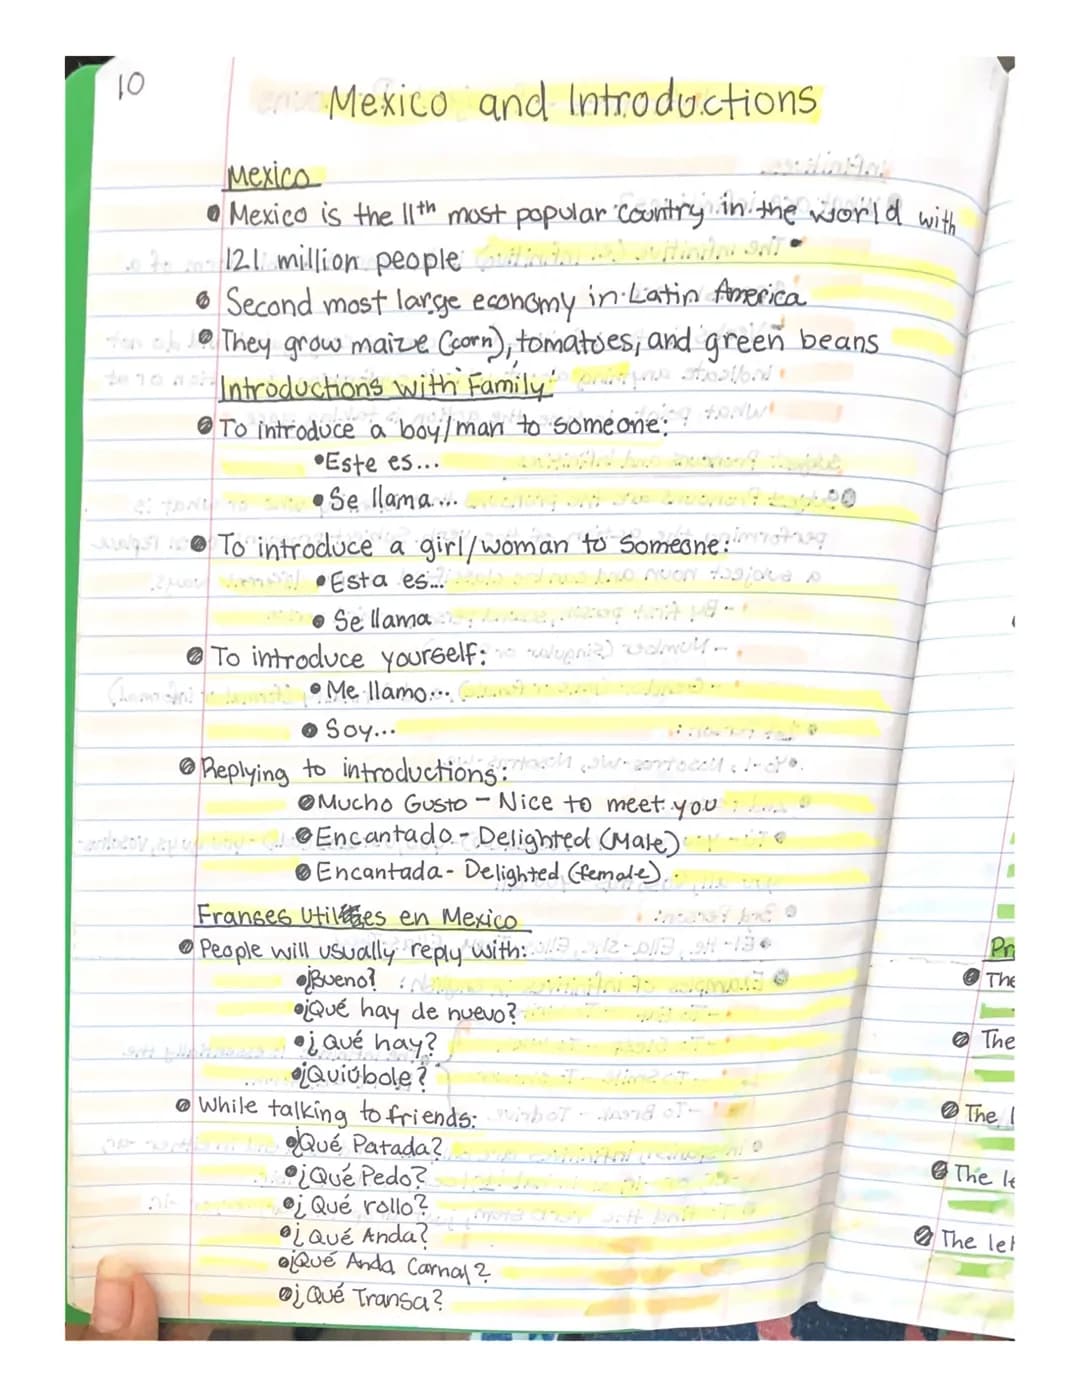 10
Mexico and Introductions
Mexico
Mexico is the 11th most popular country in the world with
121 million people
Second most large economy in Latin America
They grow maize (corn), tomatoes, and green beans
Introductions with Family
To introduce a boy/man to someone:
Este es...
Se llama...
To introduce a girl/woman to someone:
Esta es...
Se llama
To introduce yourself:
Me llamo...
Soy...
Replying to introductions:
Mucho Gusto - Nice to meet you
Encantado - Delighted (Male)
Encantada - Delighted (female)
Franses Utiles en Mexico
People will usually reply with:
¿Bueno?
¿Qué hay de nuevo?
¿Qué hay?
¿Quiúbole?
While talking to friends:
¿Qué Patada?
¿Qué Pedo?
¿Qué rollo?
¿Qué Anda?
¿Qué Anda Carnal?
¿Qué Transa?
Pr
The
The
The l
The le
The let